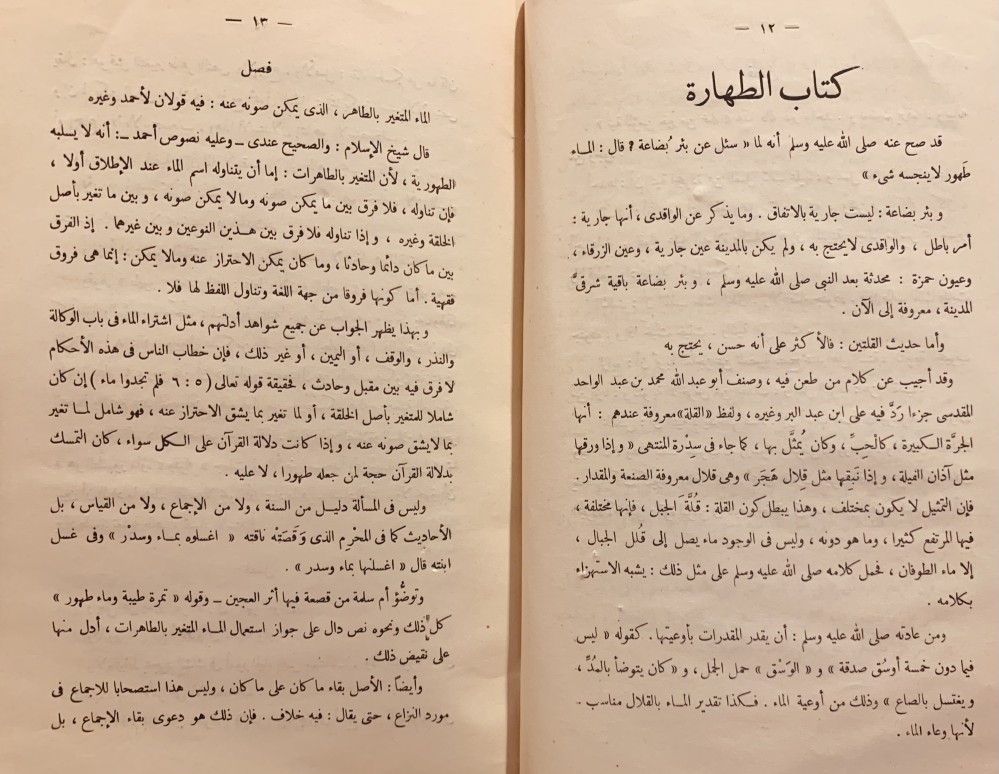 — ١٢ —
كتاب الطهارة
قد صح عنه صلى الله عليه وسلم أنه لما « سئل عن بئر بُضاعة ؟ قال : المـاء
طَهور لاينجسه شىء »
و بئر بضاعة : ليست جارية بالاتفاق . وما يذكر عن الواقدى ، أنها جارية :
أمر باطل ، والواقدى لايحتج به ، ولم يكن بالمدينة عين جارية ، وعين الزرقاء ،
وعيون حمزة : محدثة بعد النبى صلى الله عليه وسلم ، وبئر بضاعة باقية شرقىَّ
المدينة ، معروفة إلى الآن .
وأما حديث القلتين : فالأكثر على أنه حسن ، يحتج به
وقد أجيب عن كلام من طعن فيه ، وصنف أبو عبد الله محمد بن عبد الواحد
المقدسى جزءا رَدَّ فيه على ابن عبد البر وغيره ، ولفظ «القلة» معروفة عندهم : أنها
الجرَّة الكبيرة ، كالحِبِّ ، وكان يُمثَّل بها ، كما جاء فى سِدْرة المنتهى « وإذا ورقها
مثل آذان الفيلة ، وإذا نَبِقها مثل قِلال هَجَر » وهى قلال معروفة الصنعة والمقدار .
فإن التمثيل لا يكون بمختلف ، وهذا يبطل كون القلة : قُلَّةَ الجبل ، فإنها مختلفة ،
فيها المرتفع كثيرا ، وما هو دونه ، وليس فى الوجود ماء يصل إلى قُلل الجبال ،
إلا ماء الطوفان ، فحمل كلامه صلى الله عليه وسلم على مثل ذلك : يشبه الاستهزاء
بكلامه .
ومن عادته صلى الله عليه وسلم : أن يقدر المقدرات بأوعيتها . كقوله « ليس
فيما دون خمسة أوسُق صدقة » و « الوَسْق » حمل الجمل ، و « كان يتوضأ بالمُدِّ ،
ويغتسل بالصاع » وذلك من أوعية الماء . فكذا تقدير المـاء بالقلال مناسب -
لأنها وعاء الماء .
— ١٣ —
فصل
الماء المتغير بالطاهر ، الذى يمكن صونه عنه : فيه قولان لأحمد وغيره
قال شيخ الإسلام : والصحيح عندى ــ وعليه نصوص أحمد ــ : أنه لا يسلبه
الطهورية ، لأن المتغير بالطاهرات : إما أن يتناوله اسم الماء عند الإطلاق أولا ،
فإن تناوله ، فلا فرق بين ما يمكن صونه ومالا يمكن صونه ، و بين ما تغير بأصل
الخلقة وغيره ، وإذا تناوله فلا فرق بين هـذين النوعين و بين غيرهما . إذ الفرق
بين ما كان دائما وحادثا ، وما كان يمكن الاحتراز عنه ومالا يمكن : إنما هى فروق
فقهية . أما كونها فروقا من جهة اللغة وتناول اللفظ لها فلا .
و بهذا يظهر الجواب عن جميع شواهد أدلتهم ، مثل اشتراء الماء فى باب الوكالة
والنذر ، والوقف ، أو اليمين ، أو غير ذلك ، فإن خطاب الناس فى هذه الأحكام
لا فرق فيه بين مقبل وحادث ، فحقيقة قوله تعالى ( ٥ : ٦ فلم تجدوا ماء ) إن كان
شاملا للمتغير بأصل الخلقة ، أو لما تغير بما يشق الاحتراز عنه ، فهو شامل لمـا تغير
بما لايشق صونه عنه ، وإذا كانت دلالة القرآن على الكل سواء ، كان التمسك
بدلالة القرآن حجة لمن جعله طهورا ، لا عليه .
وليس فى المسألة دليـل من السنة ، ولا من الإجماع ، ولا من القياس ، بل
الأحاديث كما فى المحْرِم الذى وَقَصَتْه ناقته « اغسلوه بمـاء وسدْر » وفى غسل
ابنته قال « اغسلنها بماء وسدر » .
وتوضُّؤ أم سلمة من قصعة فيها أثر العجين ــ وقوله « تمرة طيبة وماء طهور »
كل ذلك ونحوه نص دال على جواز استعمال المـاء المتغير بالطاهرات ، أدل منها
على نقيض ذلك .
وأيضاً : الأصل بقاء ما كان على ما كان ، وليس هذا استصحابا للاجماع فى
مورد النزاع ، حتى يقال : فيه خلاف . فإن ذلك هو دعوى بقاء الإجماع ، بل